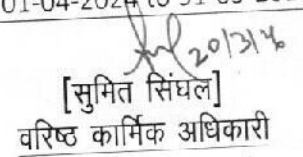 01-04-2024 to 31-03-
20/3/26
[सुमित सिंघल]
वरिष्ठ कार्मिक अधिकारी